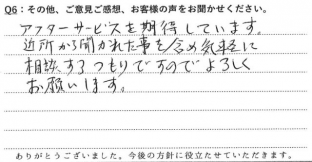 Q6：その他、ご意見ご感想、お客様の声をお聞かせください。
アフターサービスを期待しています。
近所から聞かれた事を含め気軽に
相談するつもりですのでよろしく
お願いします。
ありがとうございました。今後の方針に役立たせていただきます。